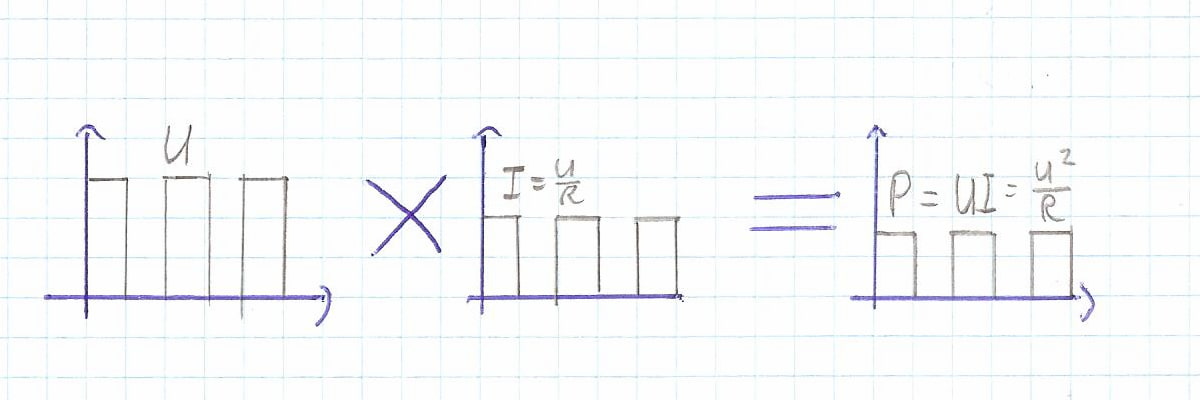 U
I = U/R
P = UI = U²/R